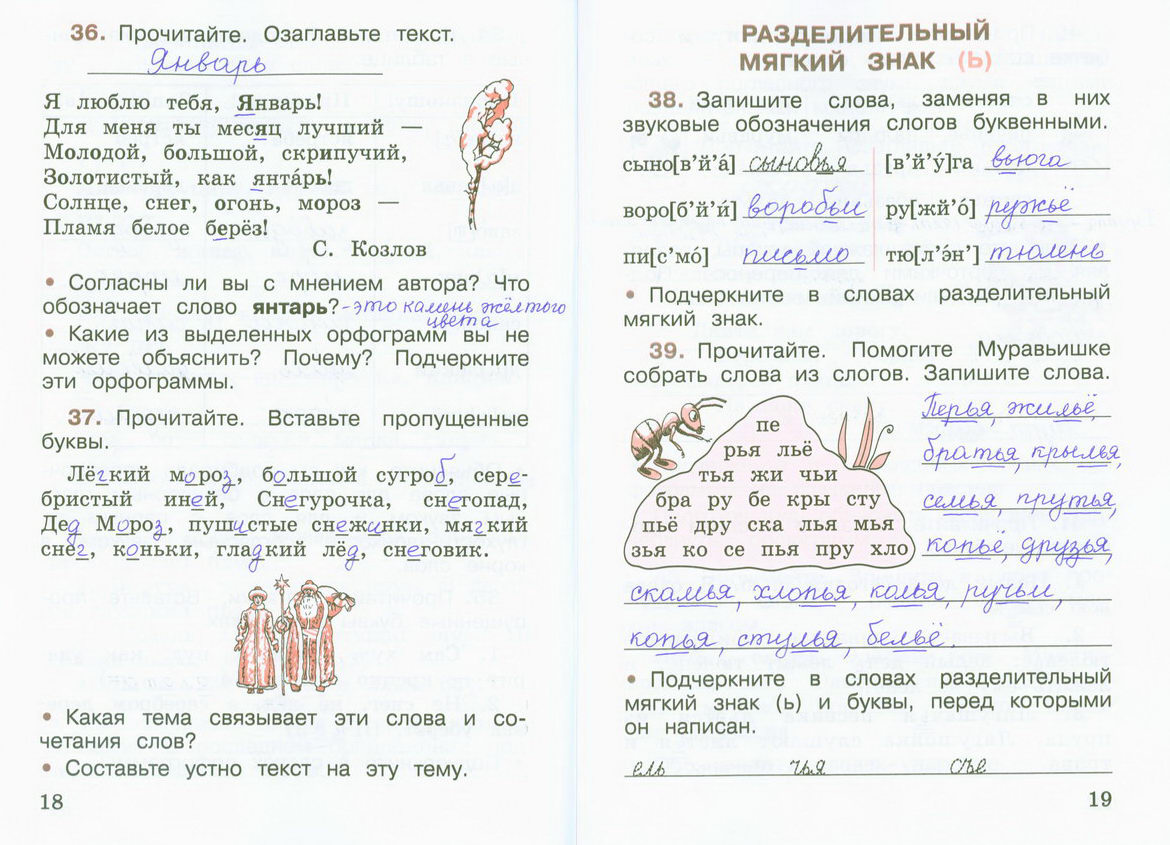 36. Прочитайте. Озаглавьте текст.
Январь
Я люблю тебя, Январь!
Для меня ты месяц лучший —
Молодой, большой, скрипучий,
Золотистый, как янта́рь!
Солнце, снег, огонь, мороз —
Пламя белое берёз!
С. Козлов
• Согласны ли вы с мнением автора? Что
обозначает слово янтарь? - это камень жёлтого
цвета
• Какие из выделенных орфограмм вы не
можете объяснить? Почему? Подчеркните
эти орфограммы.
37. Прочитайте. Вставьте пропущенные
буквы.
Лёгкий мороз, большой сугроб, сере-
бристый иней, Снегурочка, снегопад,
Дед Мороз, пушистые снежинки, мягкий
снег, коньки, гладкий лёд, снеговик.
• Какая тема связывает эти слова и со-
четания слов?
• Составьте устно текст на эту тему.
18
РАЗДЕЛИТЕЛЬНЫЙ
МЯГКИЙ ЗНАК (Ь)
38. Запишите слова, заменяя в них
звуковые обозначения слогов буквенными.
сыно[в'й'а́] сыновья [в'й'у́]га вьюга
воро[б'й'и́] воробьи ру[жй'о́] ружьё
пи[с'мо́] письмо тю[л'э́н'] тюлень
• Подчеркните в словах разделительный
мягкий знак.
39. Прочитайте. Помогите Муравьишке
собрать слова из слогов. Запишите слова.
пе
рья льё
тья жи чьи
бра ру бе кры сту
пьё дру ска лья мья
зья ко се пья пру хло
Перья, жильё,
братья, крылья,
семья, прутья,
копьё, друзья,
скамья, хлопья, колья, ручьи,
копья, стулья, бельё.
• Подчеркните в словах разделительный
мягкий знак (ь) и буквы, перед которыми
он написан.
ель чья
19